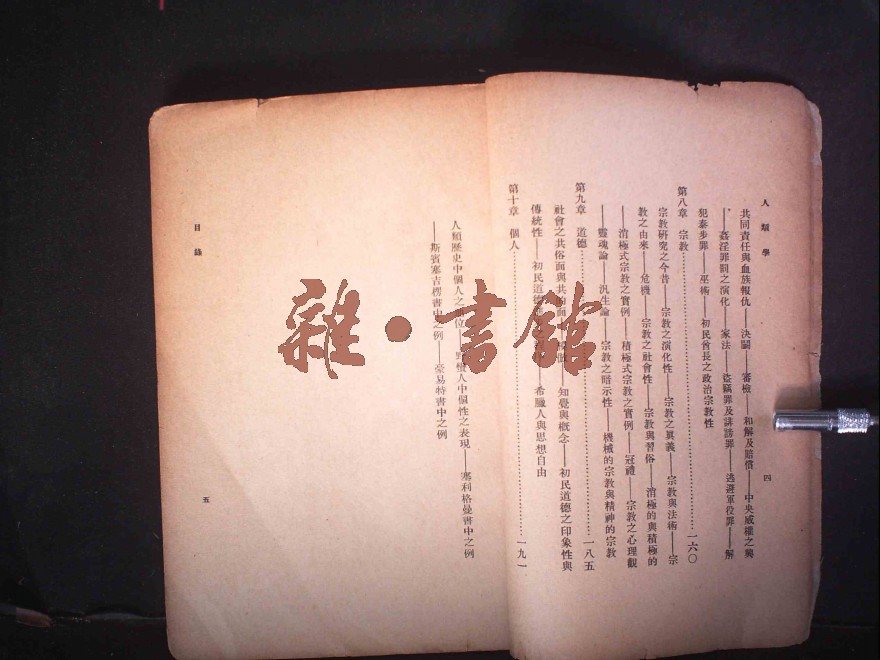 人類學
四
共同責任與血族報仇——決鬭——審檢——和解及賠償——中央威權之興
——姦淫罪罰之演化——家法——盜竊罪及誹謗罪——逃避軍役罪——解
犯泰步罪——巫術——初民酋長之政治宗教性
第八章 宗教……一六〇
宗教研究之今昔——宗教之演化性——宗教之真義——宗教與法術——宗
教之由來——危機——宗教之社會性——宗教與習俗——消極的與積極的
——消極式宗教之實例——積極式宗教之實例——冠禮——宗教之心理觀
——靈魂論——汎生論——宗教之暗示性——機械的宗教與精神的宗教
第九章 道德……一八五
社會之共俗面與共——知覺與概念——初民道德之印象性與
傳統性——初民道德——希臘人與思想自由
第十章 個人……一九一
人類歷史中個人之位——野蠻人中個性之表現——塞利格曼書中之例
——斯賓塞吉楞書中之例——豪易特書中之例
目錄
五
雜·書館